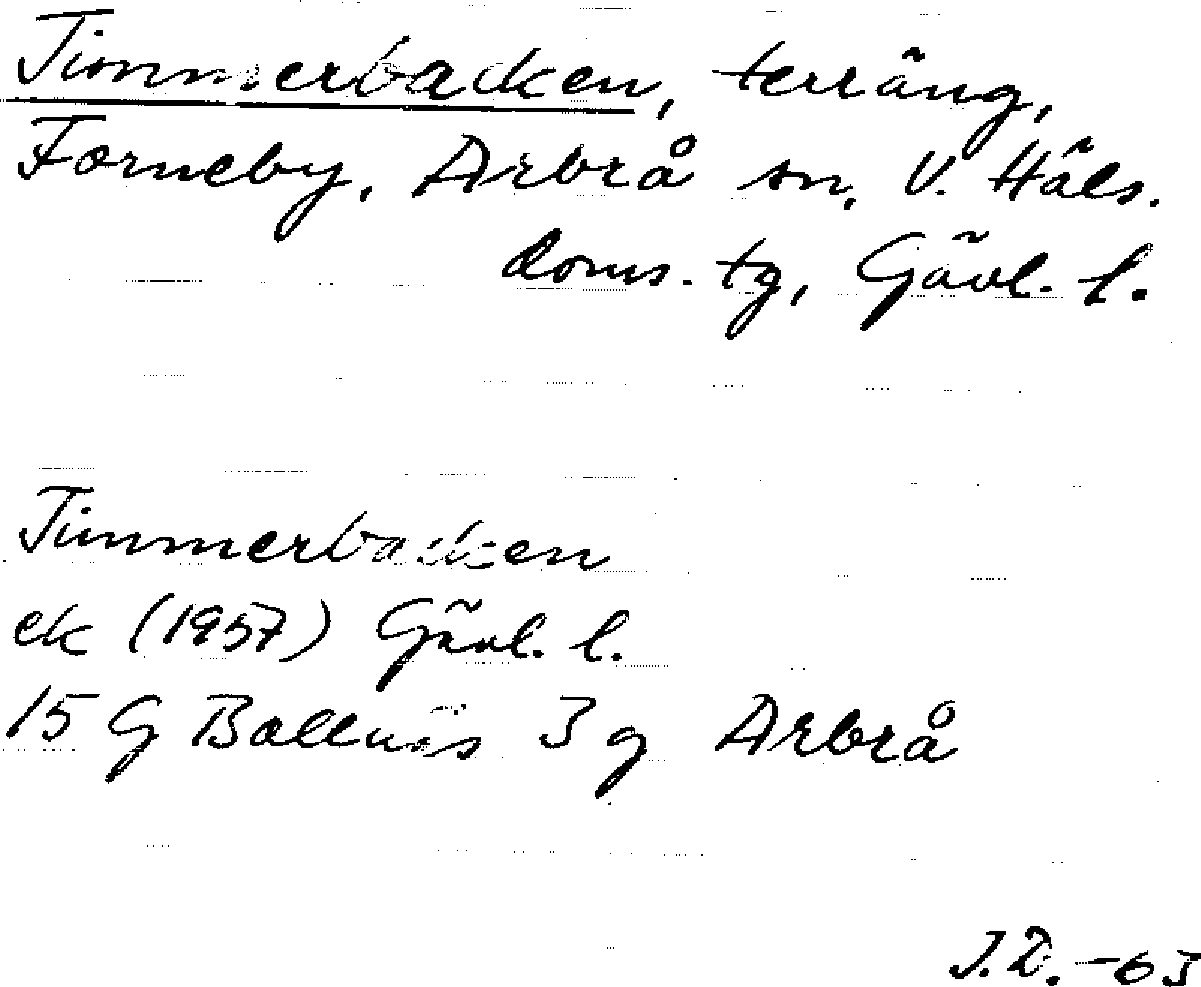 Timmerbacken, terräng,
Forneby, Arbrå sn, V. Häls.
doms. tg, Gävl. l.
Timmerbacken
ek (1957) Gävl. l.
15 G Bollnäs 3 g Arbrå
J.D. -63